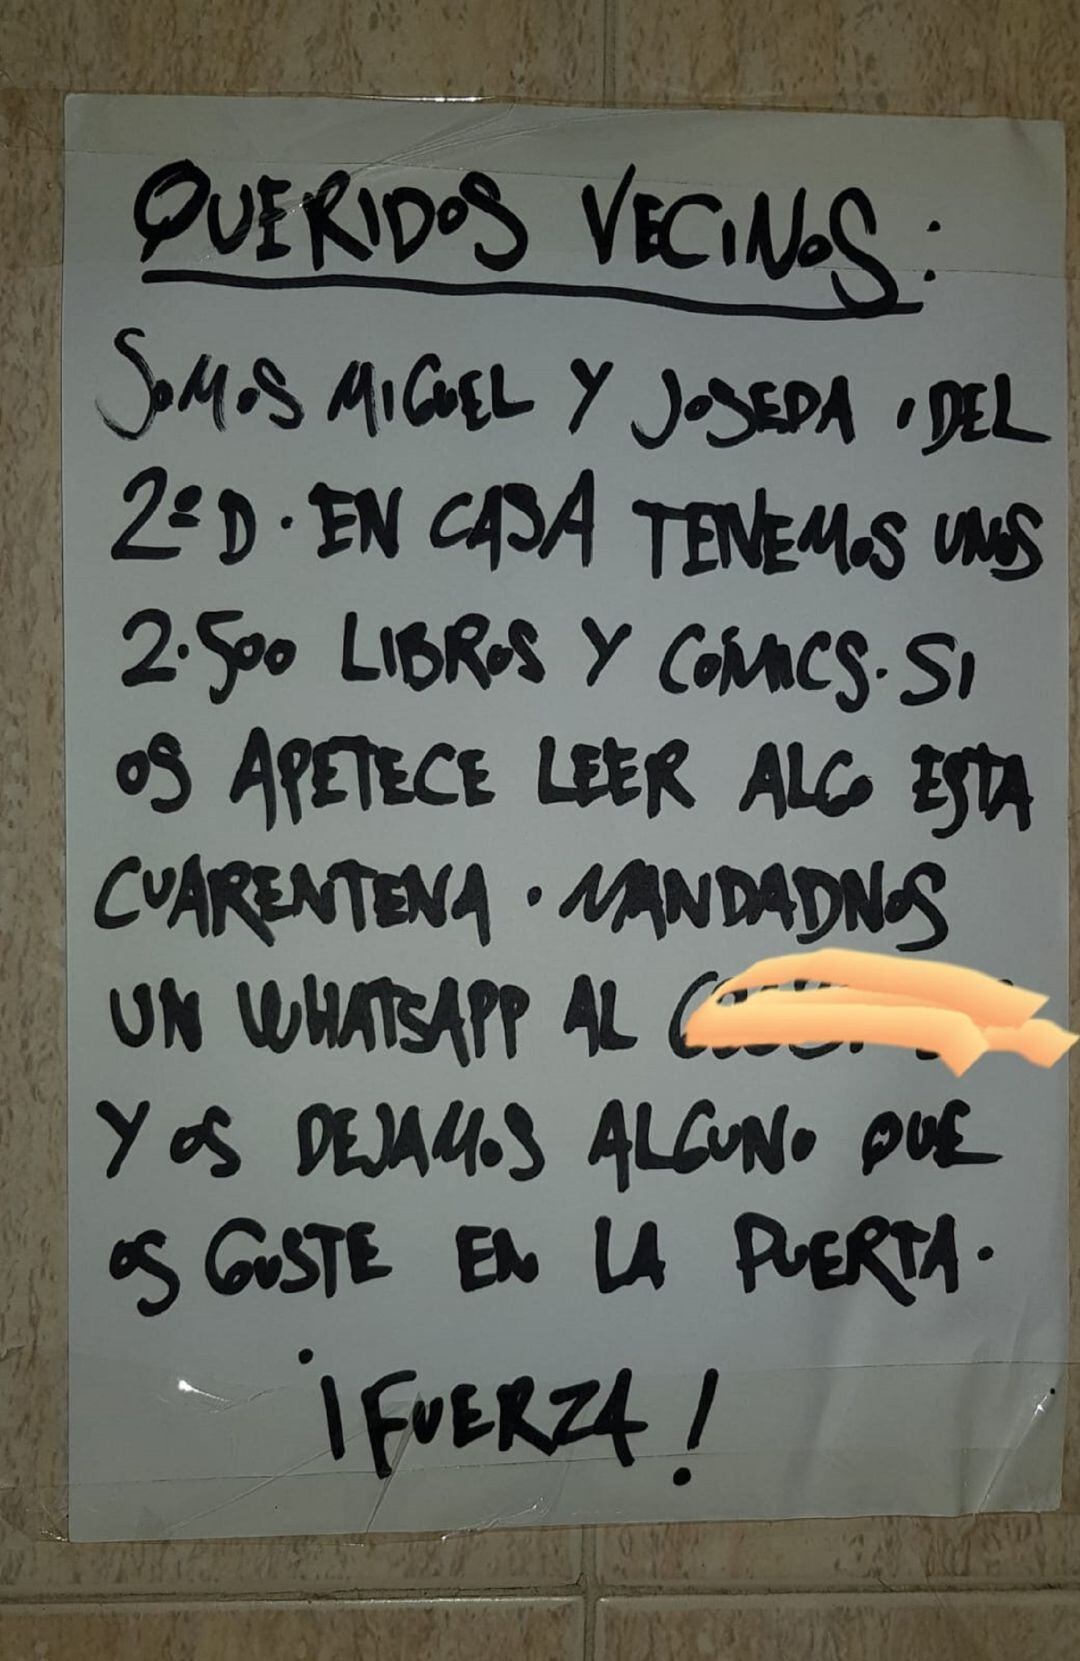 QUERIDOS VECINOS:
SOMOS MIGUEL Y JOSEDA, DEL
2º D. EN CASA TENEMOS UNOS
2.500 LIBROS Y CÓMICS. SI
OS APETECE LEER ALGO ESTA
CUARENTENA, MANDADNOS
UN WHATSAPP AL
Y OS DEJAMOS ALGUNO QUE
OS GUSTE EN LA PUERTA.
¡FUERZA!